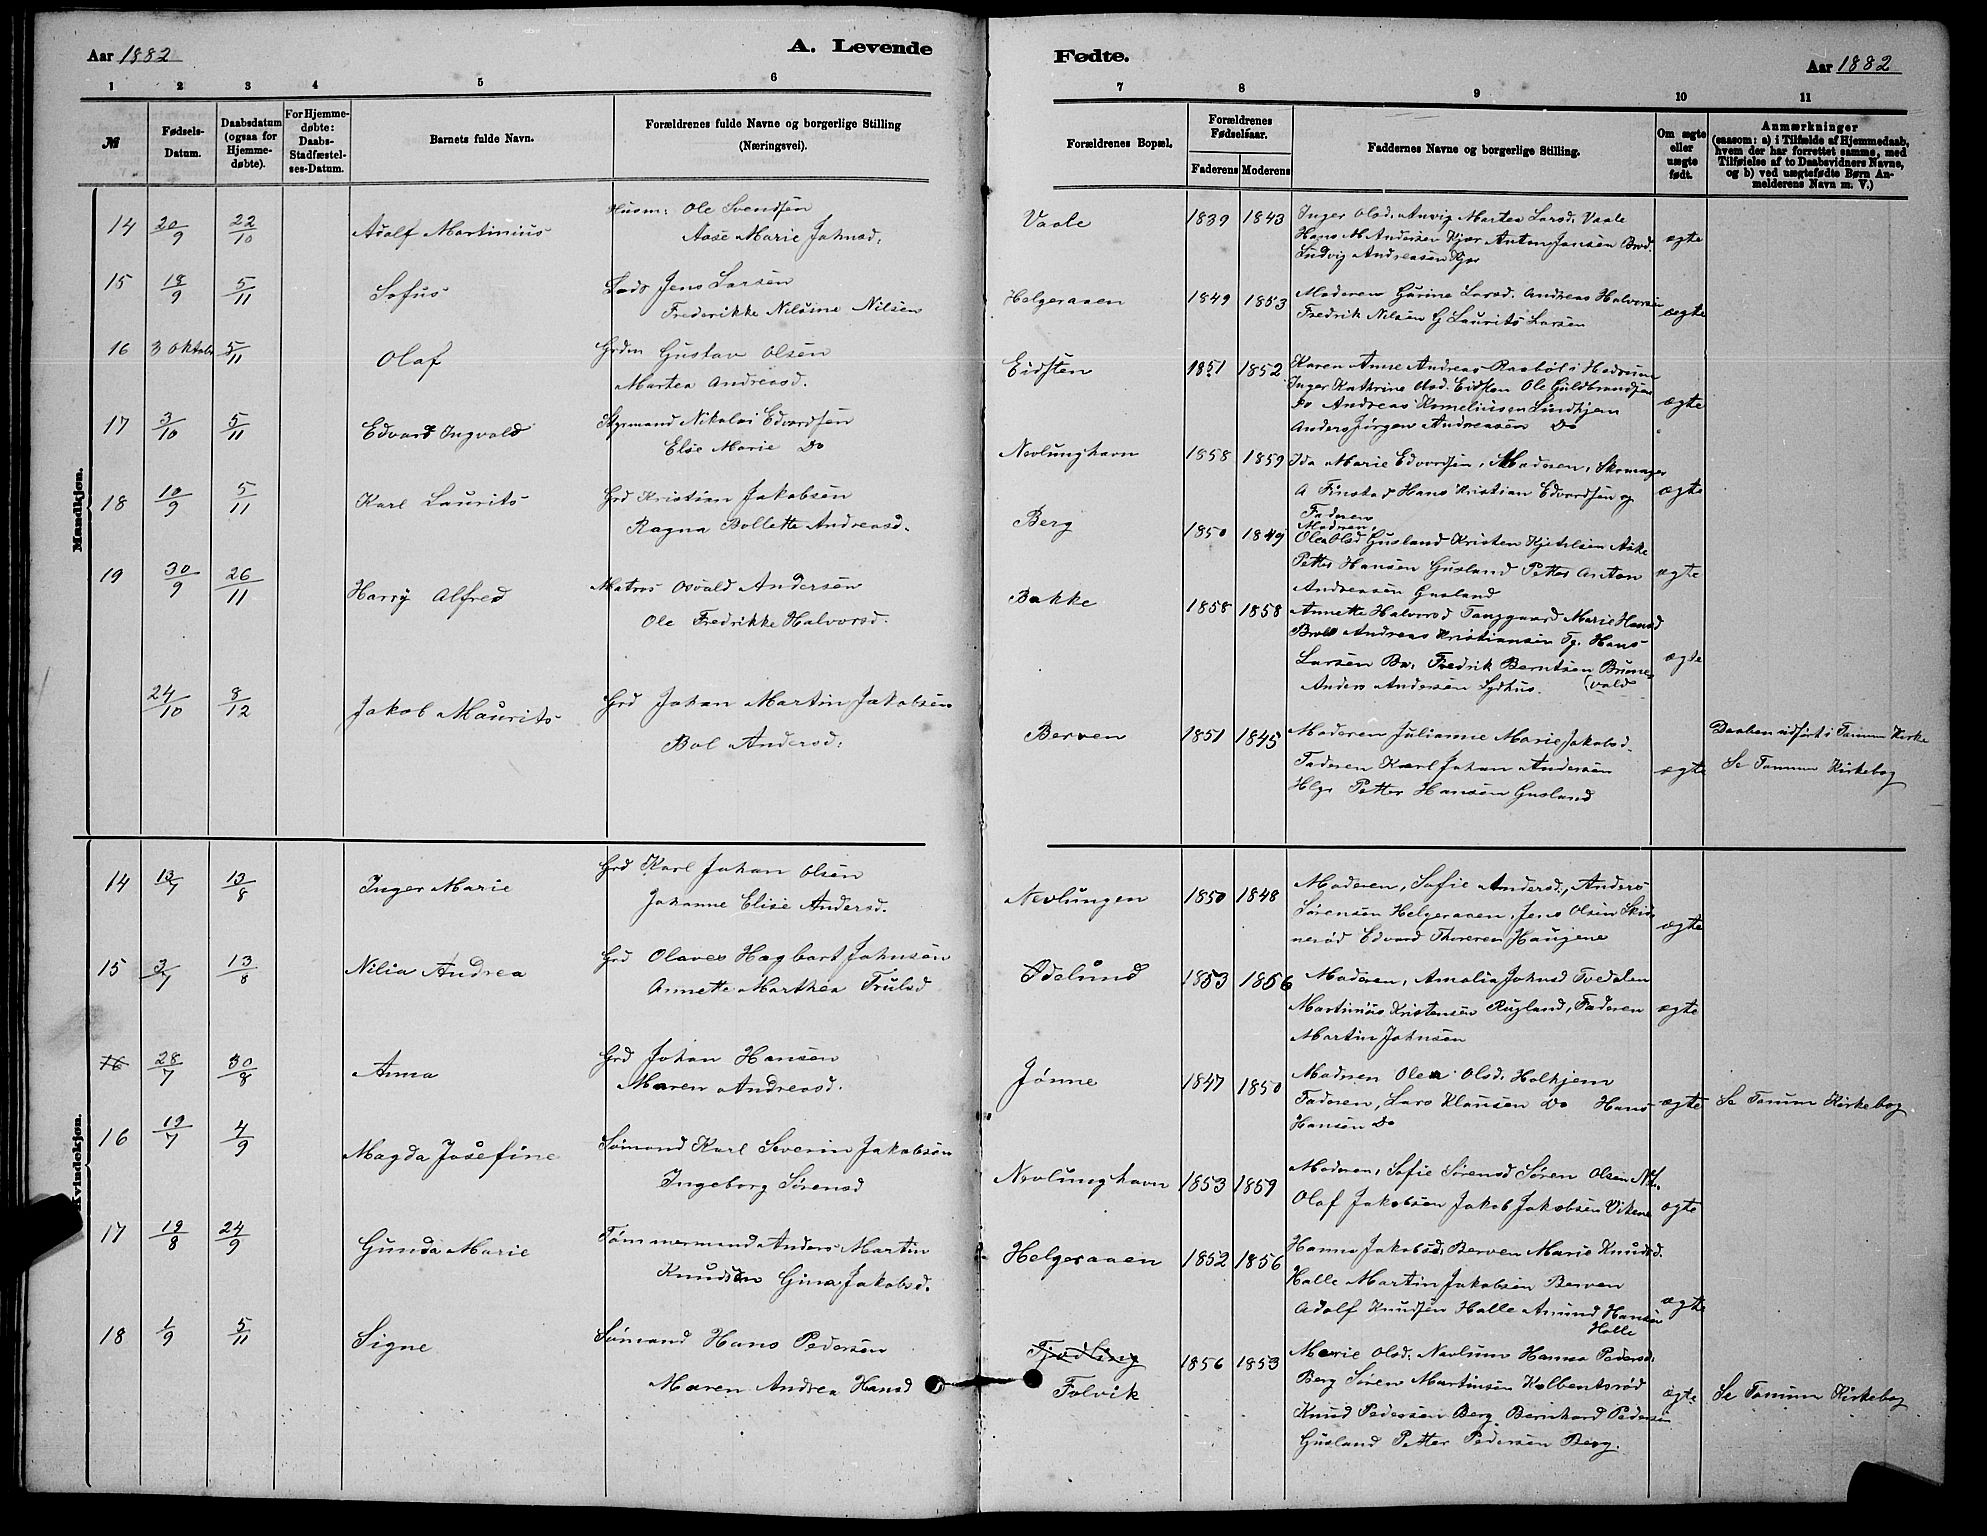 Aar 1882
A. Levende
1 2 3 4 5 6
№
Fødsels-Datum.
Daabsdatum (ogsaa for Hjemmedøbte).
For Hjemmedøbte: Daabs-Stadfæstelses-Datum.
Barnets fulde Navn.
Forældrenes fulde Navne og borgerlige Stilling
(Næringsvei).
Mandkjøn.
14 20/9 22/10 Adolf Martinius Husm: Ole Svendsen
Aase Marie Johnsd.
15 18/9 5/11 Sofus Lods Jens Larsen
Frederikke Nilsine Nilsen
16 3 Oktob 5/11 Olaf Grdm Gustav Olsen
Martea Andreasd.
17 3/10 5/11 Edvard Ingvald Styrmand Nikolai Edvardsen
Elise Marie Do
18 10/9 5/11 Karl Laurits Grd Kristian Jakobsen
Ragna Bollette Andreasd.
19 30/9 26/11 Harry Alfred Matros Osvald Andersen
Ole Fredrikke Halvorsd.
24/10 8/12 Jakob Maurits Grd Johan Martin Jakobsen
Bol Andersd.
Kvindekjøn.
14 13/7 13/8 Inger Marie Grd Karl Johan Olsen
Johanne Elise Andersd.
15 3/7 13/8 Nilia Andrea Grd Olaves Hagbart Johnsen
Annette Marthea Trulsd
16 28/7 30/8 Anna Grd Johan Hansen
Maren Andreasd.
16 19/7 4/9 Magda Josefine Sømand Karl Severin Jakobsen
Ingeborg Sørensd
17 19/8 24/9 Gunda Marie Tømmermand Anders Martin
Knudsen Gina Jakobsd.
18 1/9 5/11 Signe Sømand Hans Pedersen
Maren Andrea Hansd
Fødte.
Aar 1882
7 8 9 10 11
Forældrenes Bopæl.
Forældrenes Fødselsaar.
Faderens Moderens
Faddernes Navne og borgerlige Stilling.
Om ægte eller uægte født.
Anmærkninger
(saasom: a) i Tilfælde af Hjemmedaab,
hvem der har forrettet samme, med
Tilføielse af to Daabsvidners Navne,
og b) ved uægtefødte Børn Anmelderens Navn m. V.)
Vaale 1839 1843 Inger Olsd. Anvig Martea Larsd. Vaale
Hans M Andersen Kjær Anton Jansen Brod.
Ludvig Andreasen Kjær
ægte
Helgeraaen 1849 1853 Moderen Gurine Larsd. Andreas Halvorsen
Fredrik Nilsen G Laurits Larsen
ægte
Eidsten 1851 1852 Karen Anne Andreas Raabøl i Hedrum
Inger Kathrine Olsd. Eidsten Ole Guldbrandsen
Do Andreas Korneliusen Lindhjem
Anders Jørgen Andreasen Do
ægte
Nevlunghavn 1858 1859 Ida Marie Edvardsen, Moderen, Skomager
A Finstad Hans Kristian Edvardsen og
Faderen
ægte
Berg 1850 1849 Moderen,
Olea Olsd Gusland Kristen Kjetilsen Aske
Petter Hansen Gusland Petter Anton
Andreasen Gusland
ægte
Bakke 1858 1858 Annette Halvorsd Tanggaard Marie Hansd
Andreas Kristiansen Tg. Hans
Larsen Fredrik Berntsen Brunes
(vald
Anders Andersen Sydhus.
ægte
Berven 1851 1845 Moderen Julianne Marie Jakobsd.
Faderen Karl Johan Andersen
Helgr Petter Hansen Gusland
ægte
Daaben udført i Tanum Kirke
Se Tanum Kirkebog
Nevlungen 1850 1848 Moderen, Sofie Andersd., Anders
Sørensen Helgeraaen, Jens Olsen Skin
nerød Edvard Thoresen Haugene
ægte
Ødelund 1853 1856 Moderen, Amalia Johnsd Tvedalen
Martinius Kristensen Rugland, Faderen
Martin Johnsen
ægte
Jønne 1847 1850 Moderen Olea Olsd. Holhjem
Faderen, Lars Klausen Do Hans
Hansen Do
ægte Se Tanum Kirkebog
Nevlunghavn 1853 1859 Moderen, Sofie Sørensd Søren Olsen
Olaf Jakobsen Jakob Jakobsen Vikene
ægte
Helgeraaen 1852 1856 Hanna Jakobsd. Berven Marie Knudsd.
Halle Martin Jakobsen Berven
Adolf Knudsen Halle Amund Hansen
Halle
ægte
Tjodling
Folvik
1856 1853 Marie Olsd. Nevlun Hanna Pedersd.
Berg Søren Martinsen Kolbentsrød
Knud Pedersen Berg Bernhard Pedersen
Gusland Petter Pedersen Berg.
ægte Se Tanum Kirkebog